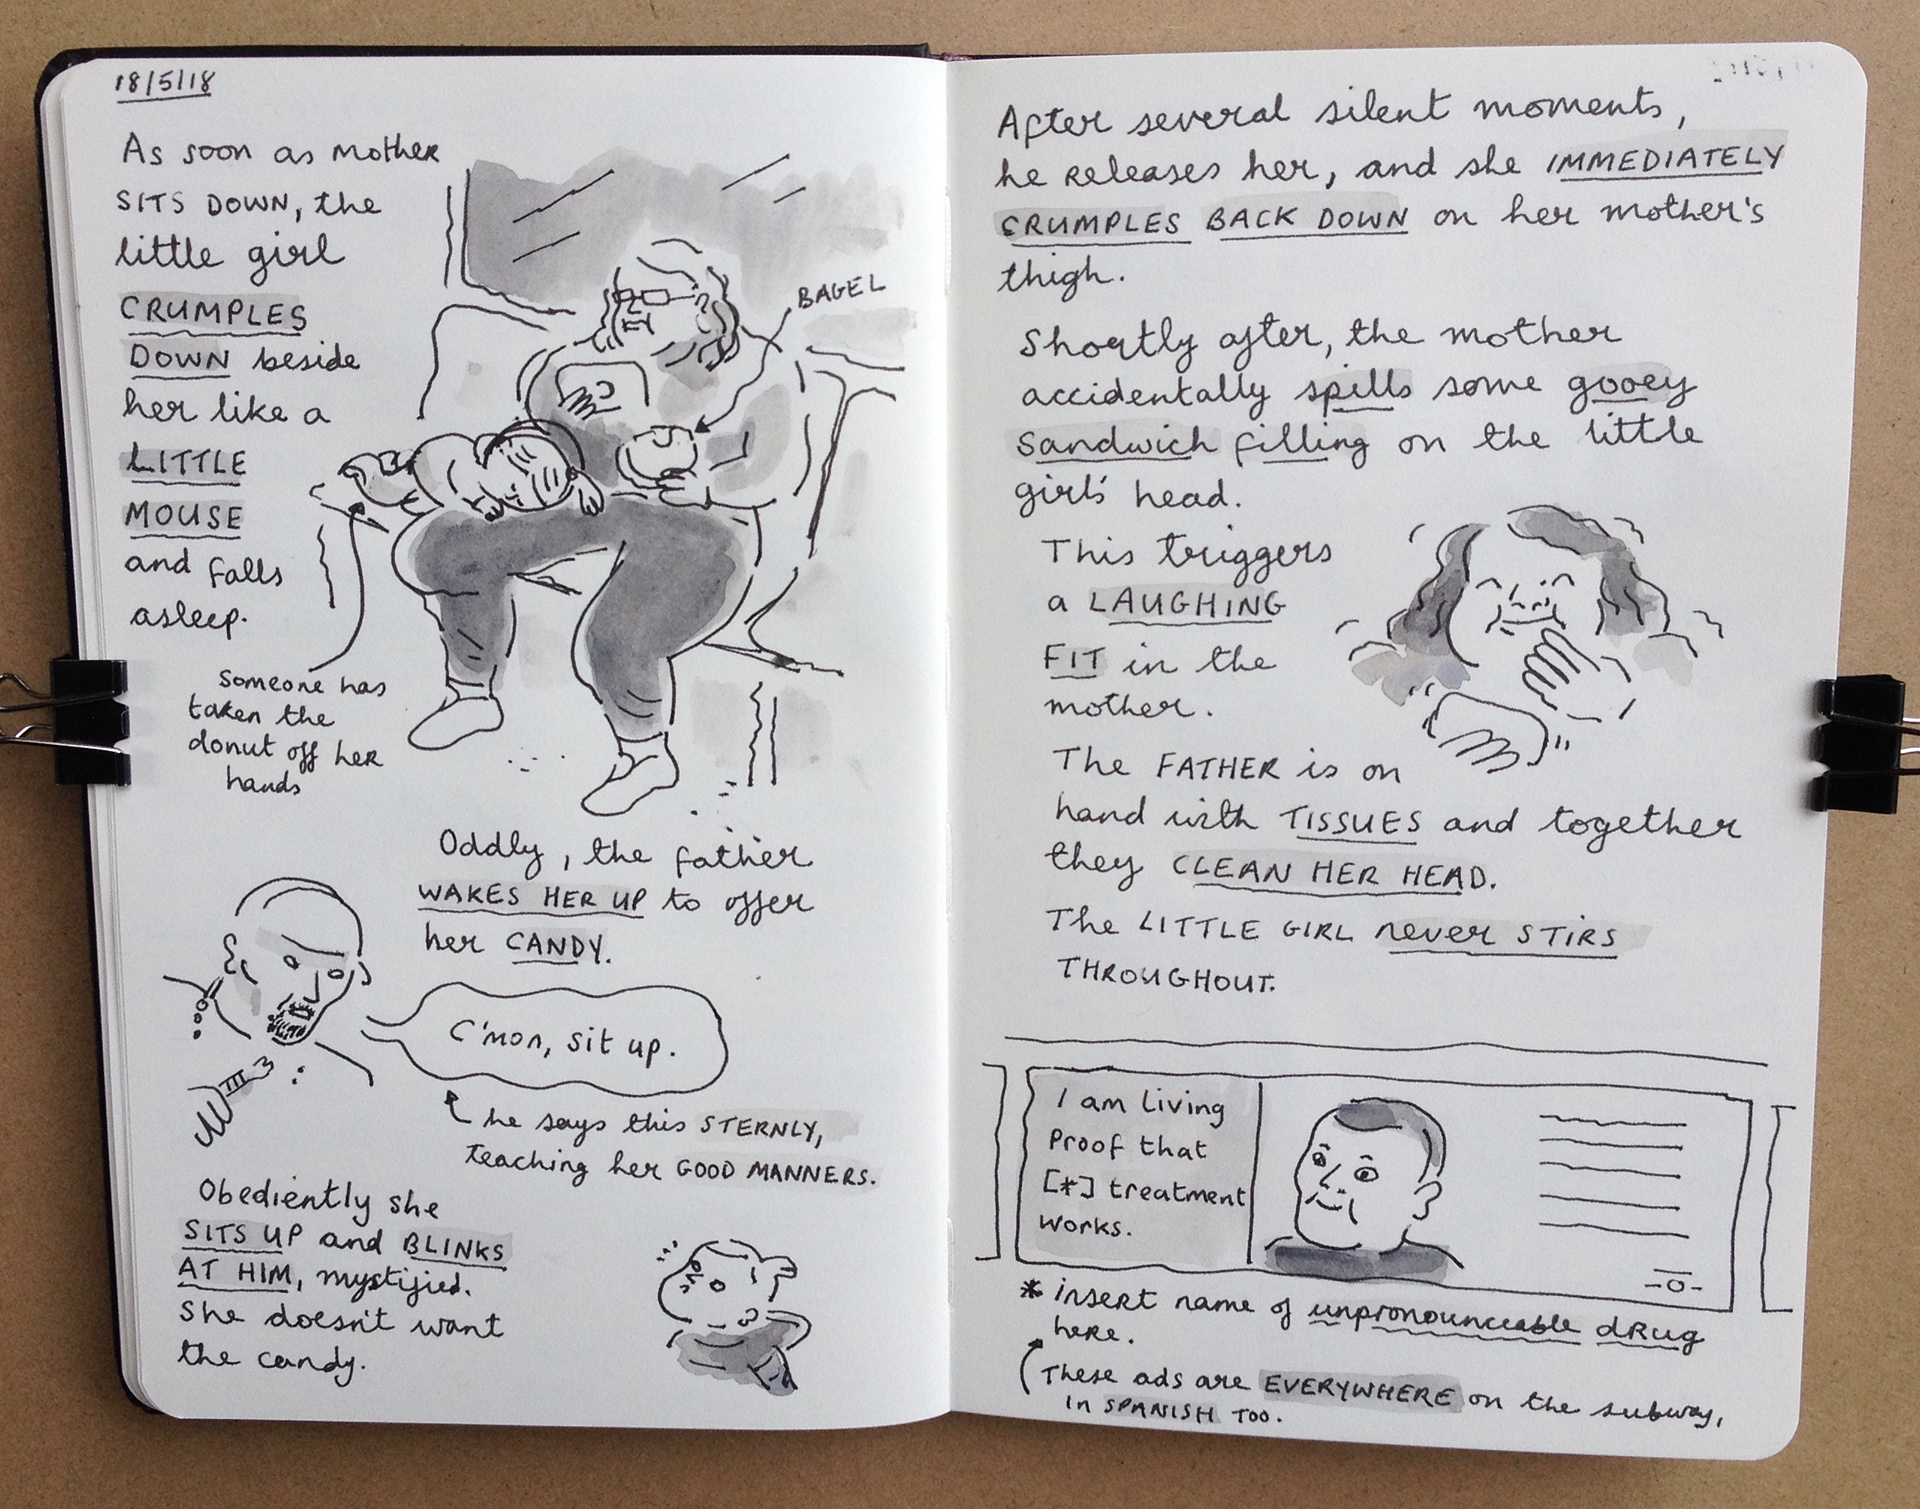 18/5/18
As soon as mother
SITS DOWN, the
little girl
CRUMPLES
DOWN beside
her like a
LITTLE
MOUSE
and falls
asleep.
BAGEL
someone has
taken the
donut off her
hands
Oddly, the father
WAKES HER UP to offer
her CANDY.
C'mon, sit up.
he says this STERNLY,
teaching her GOOD MANNERS.
Obediently she
SITS UP and BLINKS
AT HIM, mystified.
She doesn't want
the candy.
After several silent moments,
he releases her, and she IMMEDIATELY
CRUMPLES BACK DOWN on her mother's
thigh.
Shortly after, the mother
accidentally spills some gooey
sandwich filling on the little
girls' head.
This triggers
a LAUGHING
FIT in the
mother.
The FATHER is on
hand with TISSUES and together
they CLEAN HER HEAD.
The LITTLE GIRL never STIRS
THROUGHOUT.
I am living
proof that
[*] treatment
works.
* insert name of unpronounceable drug
here.
These ads are EVERYWHERE on the subway,
in SPANISH TOO.